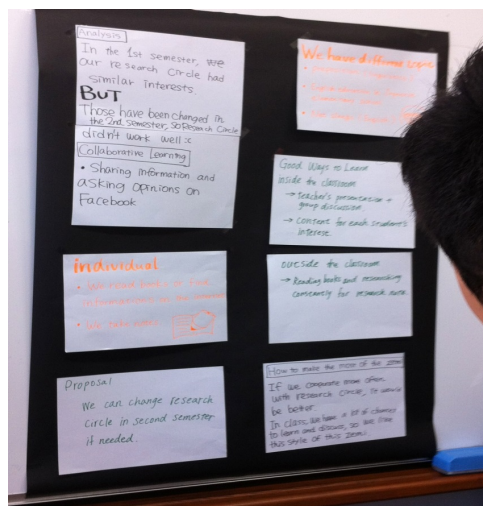 Analysis
In the 1st semester, we
our research Circle had
similar interests.
BUT
Those have been changed in
the 2nd semester, so Research Circle
didn't work well :(
Collaborative Learning
• Sharing information and
asking opinions on
Facebook
individual
• We read books or find
information on the internet
• We take notes
Proposal
We can change research
circle in second semester
if needed.
We have different
Good Ways to Learn
inside the classroom
→ Teacher's presentation +
group discussion
→ Content for each student's
interest.
outside the classroom
→ Reading books and researching
constantly for research area
How to make the most of the zemi
If we cooperate more often
with research circle, it would
be better.
In class, we have a lot of chances
to learn and discuss, so we like
this style of this zemi